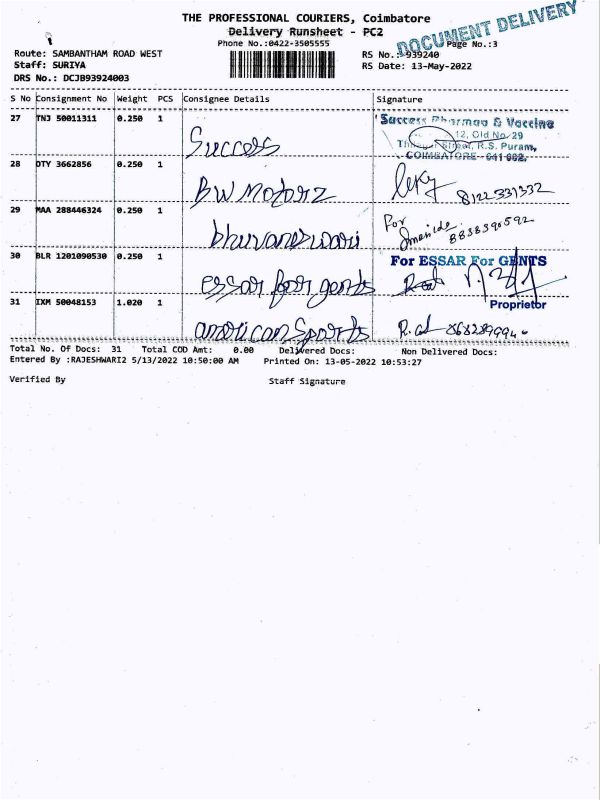 THE PROFESSIONAL COURIERS, Coimbatore
Delivery Runsheet - PC2
DOCUMENT DELIVERY
Phone No.:0422-3505555
Page No.:3
Route: SAMBANTHAM ROAD WEST
RS No.:939240
Staff: SURIYA
RS Date: 13-May-2022
DRS No.: DCJB93924003
S No Consignment No Weight PCS Consignee Details Signature
27 TNJ 50011311 0.250 1 Success
Success Pharmaa & Vaccine
12, Old No 29
Street, R.S. Puram,
COIMBATORE - 641 002.
28 DTY 3662856 0.250 1 BW Motorz 8122331332
29 MAA 288446324 0.250 1 bhuvaneswari For 8838390592
30 BLR 1201090530 0.250 1 essar for gents
For ESSAR For GENTS
Proprietor
31 IXM 50048153 1.020 1 american Sports
Total No. Of Docs: 31 Total COD Amt: 0.00 Delivered Docs: Non Delivered Docs:
Entered By :RAJESHWARI2 5/13/2022 10:50:00 AM Printed On: 13-05-2022 10:53:27
Verified By Staff Signature